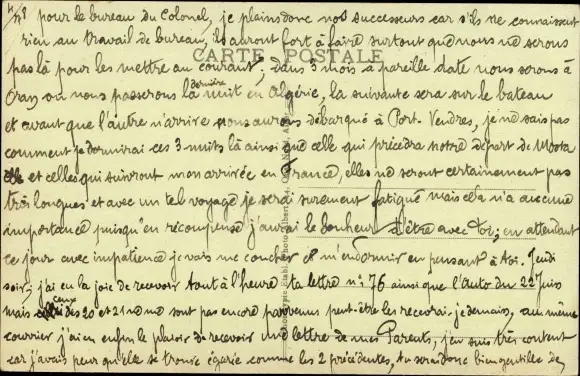 4/n° 8 pour le bureau du Colonel, je plains donc nos successeurs car s'ils ne connaissent
rien au travail de bureau, ils auront fort à faire surtout que nous ne serons
CARTE POSTALE
pas là pour les mettre au courant; dans 3 mois à pareille date nous serons à
Oran où nous passerons la dernière nuit en Algérie, la suivante sera sur le bateau
et avant que l'autre n'arrive nous aurons débarqué à Port-Vendres, je ne sais pas
comment je dormirai ces 3 nuits là ainsi que celle qui précèdra notre départ de
et celles qui suivront mon arrivée en France, elles ne seront certainement pas
très longues et avec un tel voyage je serai surement fatigué mais cela n'a aucune
importance puisqu'en récompense j'aurai le bonheur d'être avec toi; en attendant
ce jour avec impatience je vais me coucher et m'endormir en pensant à toi. Jeudi
soir; j'ai eu la joie de recevoir tout à l'heure ta lettre n°: 76 ainsi que l'Auto du 22 Juin
mais ceux des 20 et 21 ne me sont pas encore parvenus peut-être les recevrai-je demain, au même
courrier j'ai eu enfin le plaisir de recevoir une lettre de mes Parents, j'en suis très content
car j'avais peur qu'elle se trouve égarée comme les 2 précédentes, tu serais donc bien gentille de